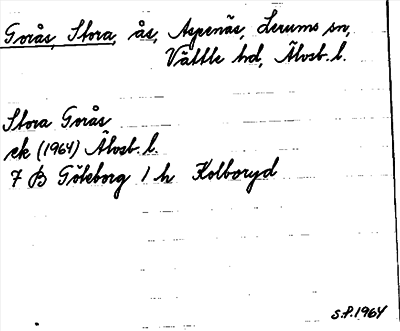 Gorås, Stora, ås, Aspenäs, Lerums sn,
Vättle hd, Älvsb. l.
Stora Gorås
ek (1964) Älvsb. l.
7 B Göteborg 1 h Kolboryd
S.P. 1964